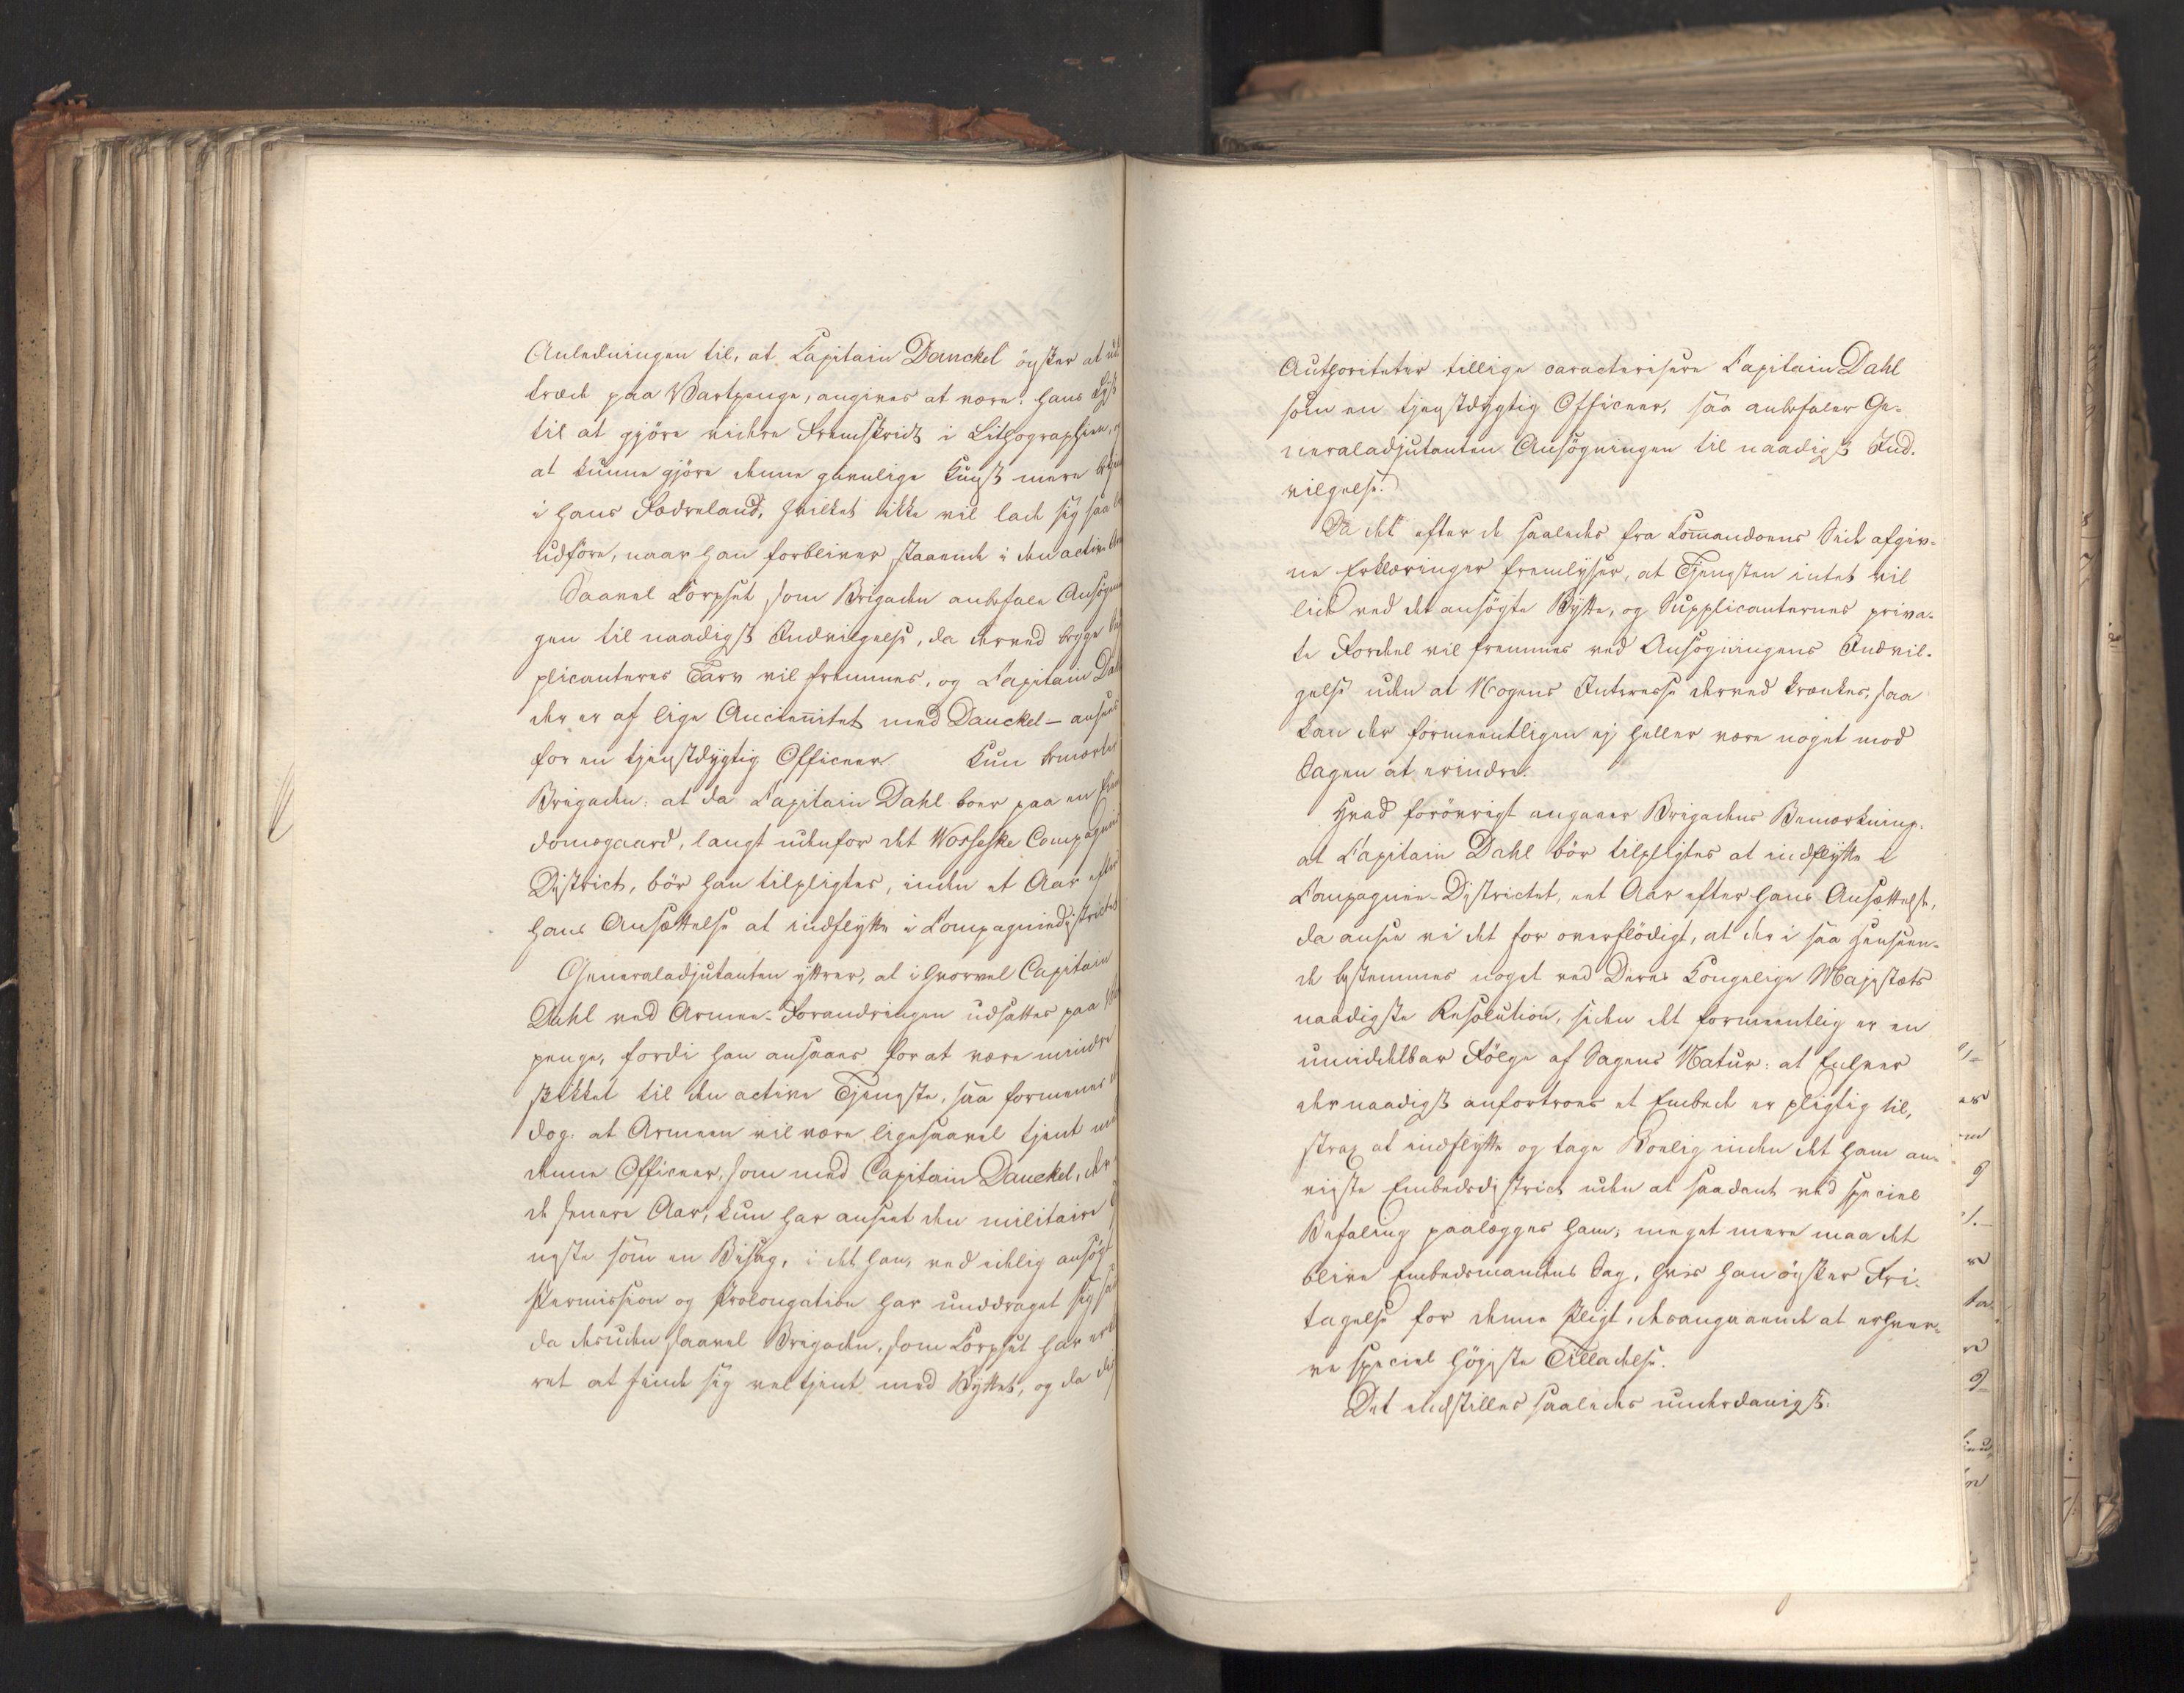 Anledningen til, at Capitain Danckel ønsker at ud
træde paa Vartpenge, angives at være: hans Lyst
til at gjøre videre Fremskridt i Lithographien, og
at kunne gjøre denne gavnlige Kunst mere
i hans Fødreland, hvilket ikke vil lade sig saa
udføre, naar han forbliver staaende i den active
Saavel Corpset som Brigaden anbefale Ansøgnin
gen til naadigst Indvilgelse, da derved begge Sup
plicanteres Tarv vil fremmes, og Capitain Dahl
der er af lige Anciennitet med Danckel – ansees
for en tjenstdygtig Officeer Kun bemærker
Brigaden: at da Capitain Dahl boer paa en Eien
domsgaard, langt udenfor det Wosseske Compagnie
District, bør han tilpligtes, inden et Aar efter
hans Ansættelse at indflytte i Compagniedistrictet
Generaladjutanten yttrer, at ihvorvel Capitain
Dahl ved Armee-Forandringen udsattes paa Vart
penge, fordi han ansaaes for at være mindre
skikket til den active Tjeneste, saa formenes
dog: at Armeen vil være ligesaavel tjent med
denne Officeer, som med Capitain Danckel, der
de senere Aar, kun har anseet den militaire Tje
neste som en Bisag, i det han, ved idelig ansøgt
Permission og Prolongation har unddraget sig
da desuden saavel Brigaden, som Corpset har
ret at finde sig vel tjent med Byttet, og da
Authoriteter tillige caracterisere Capitain Dahl
som en tjenstdygtig Officeer, saa anbefaler Ge-
neraladjutanten Ansøgningen til naadigst Ind-
vilgelse.
Da det efter de saaledes fra Commandoens Side afgiv-
ne Erklæringer fremlyser, at Tjenesten intet vil
lide ved det ansøgte Bytte, og Supplicanternes priva-
te Fordeel vil fremmes ved Ansøgningens Indvil-
gelse uden at Nogens Interesse derved krænkes, saa
kan der formeentligen ej heller være noget mod
Sagen at erindre.
Hvad forøvrigt angaaer Brigadens Bemærkning,
at Capitain Dahl bør tilpligtes at indflytte i
Compagnie-Districtet, eet Aar efter hans Ansættelse,
da ansee vi det for overflødigt, at der i saa Henseen-
de bestemmes noget ved Deres Kongelige Majestæts
naadigste Resolution, siden det formeentlig er en
umiddelbar Følge af Sagens Natur: at Enhver
der naadigst anfortroes et Embede er pligtig til,
strax at indflytte og tage Boelig inden det ham an-
viste Embedsdistrict uden at saadant ved speciel
Befaling paalægges ham; meget mere maa det
blive Embedsmandens Sag, hvis han ønsker Fri-
tagelse for denne Pligt, desangaaende at erhver-
ve speciel højeste Tilladelse.
Det indstilles saaledes underdanigst: